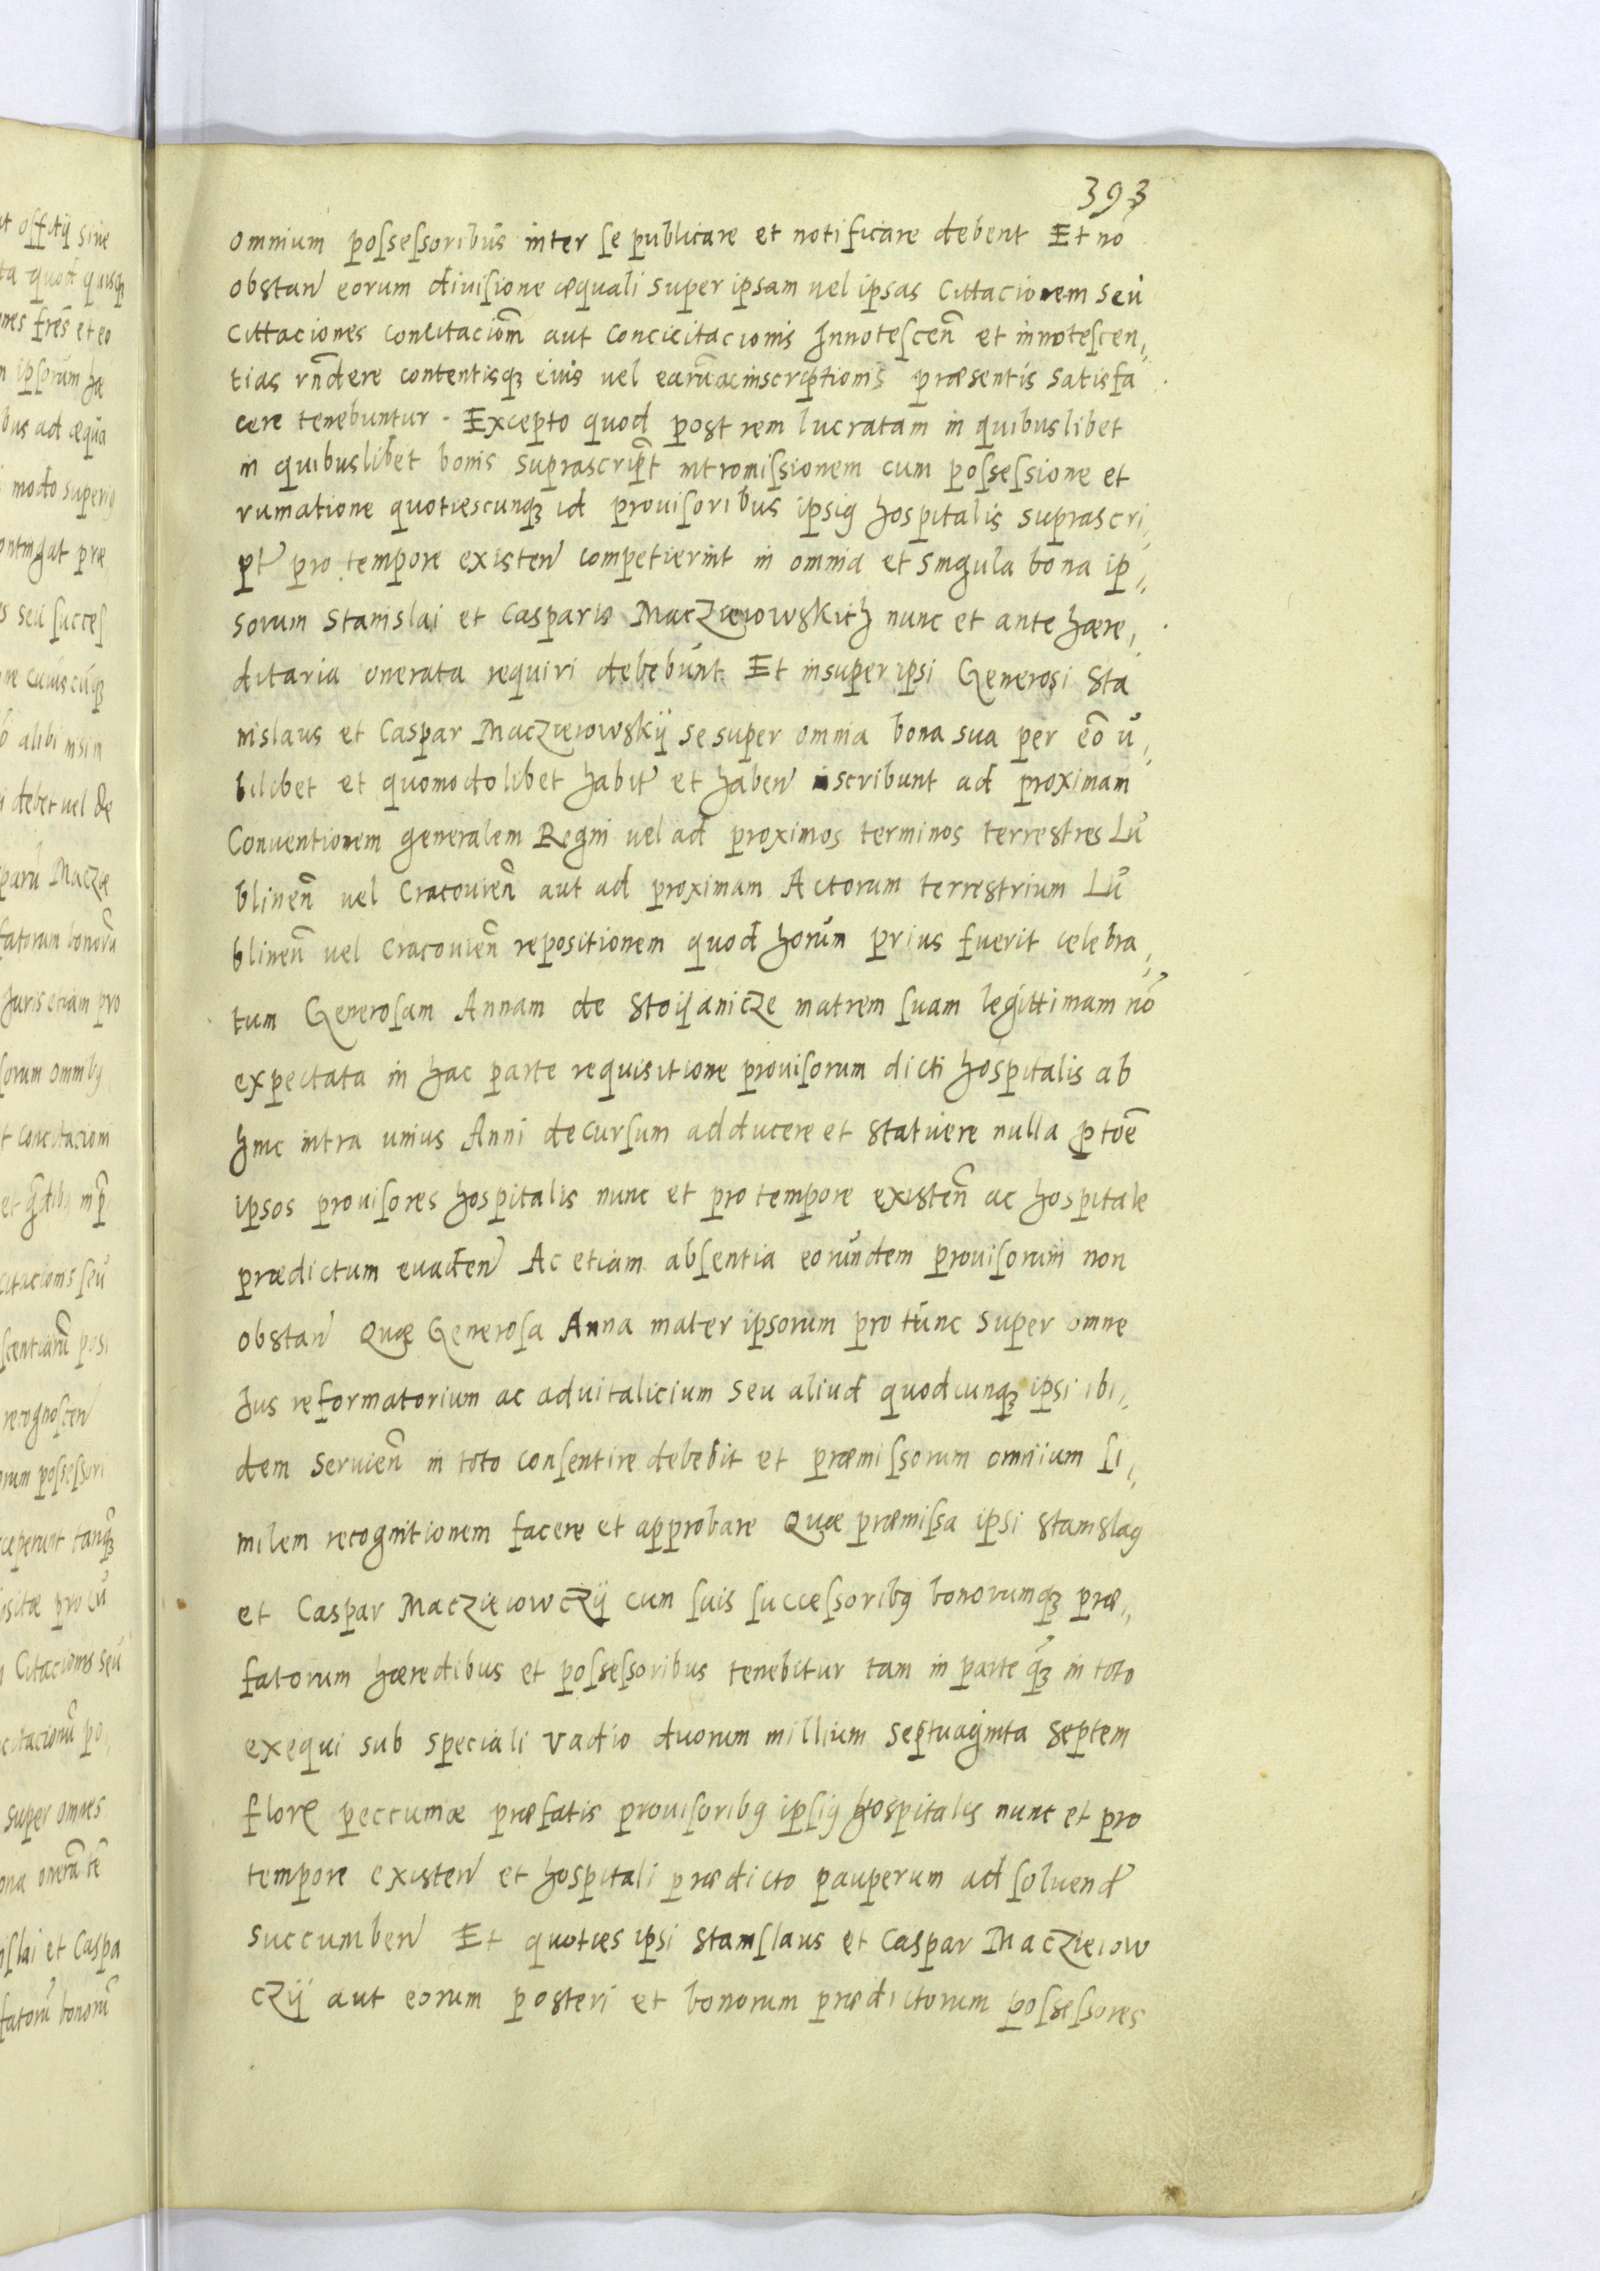 393
omnium possessoribus inter se publicare et notificare debent Et no
obstan eorum divisione æquali super ipsam vel ipsas Cittacionem seu
Cittaciones concitaciom̄ aut concicitacionis Innotescen̄ et innotescen,
tias rn̄dere contentisqꝫ eius vel earum ac inscriptionis præsentis satisfa
cere tenebuntur. Excepto quod post rem lucratam in quibuslibet
in quibuslibet bonis suprascript intromissionem cum possessione et
rumatione quotiescunqꝫ id provisoribus ipsiꝯ hospitalis suprascri,
pt pro tempore existen competierint in omnia et singula bona ip,
sorum Stanislai et Casparis Maczieiowskich nunc et ante hære,
ditaria onerata requiri debebunt Et insuper ipsi Generosi Sta
nislaus et Caspar Maczieiowskij se super omnia bona sua per eō u,
bilibet et quomodolibet habit et haben iscribunt ad proximam
Conventionem generalem Regni vel ad proximos terminos terrestres Lu
blinen̄ vel Cracovien̄ aut ad proximam Actorum terrestrium Lu
blinen̄ vel Cracovien̄ repositionem quod horum prius fuerit celebra,
tum Generosam Annam de Stoijanicze matrem suam legittimam nō
expectata in hac parte requisitione provisorum dicti hospitalis ab
hinc intra unius Anni decursum adducere et statuere nulla ꝑ toē
ipsos provisores hospitalis nunc et pro tempore existen̄ ac hospitale
prædictum evaden Ac etiam absentia eorundem provisorum non
obstan Quæ Generosa Anna mater ipsorum pro tunc super omne
Jus reformatorium ac advitalicium seu aliud quodcunqꝫ ipsi ibi,
dem servien̄ in toto consentire debebit et præmissorum omnium si,
milem recognitionem facere et approbare Quæ præmissa ipsi Stanslaꝯ
et Caspar Maczieiowczij cum suis successoribꝯ bonorumqꝫ præ,
fatorum hæredibus et possessoribus tenebitur tam in parte qꝫ̄ in toto
exequi sub speciali vadio duorum millium septuaginta septem
floreꝝ peccuniæ præfatis provisoribꝯ ipsiꝯ Hospitalis nunc et pro
tempore existen et hospitali prædicto pauperum ad solvend
succumben Et quoties ipsi Stanislaus et Caspar Maczieiow
czij aut eorum posteri et bonorum prædictorum possessores